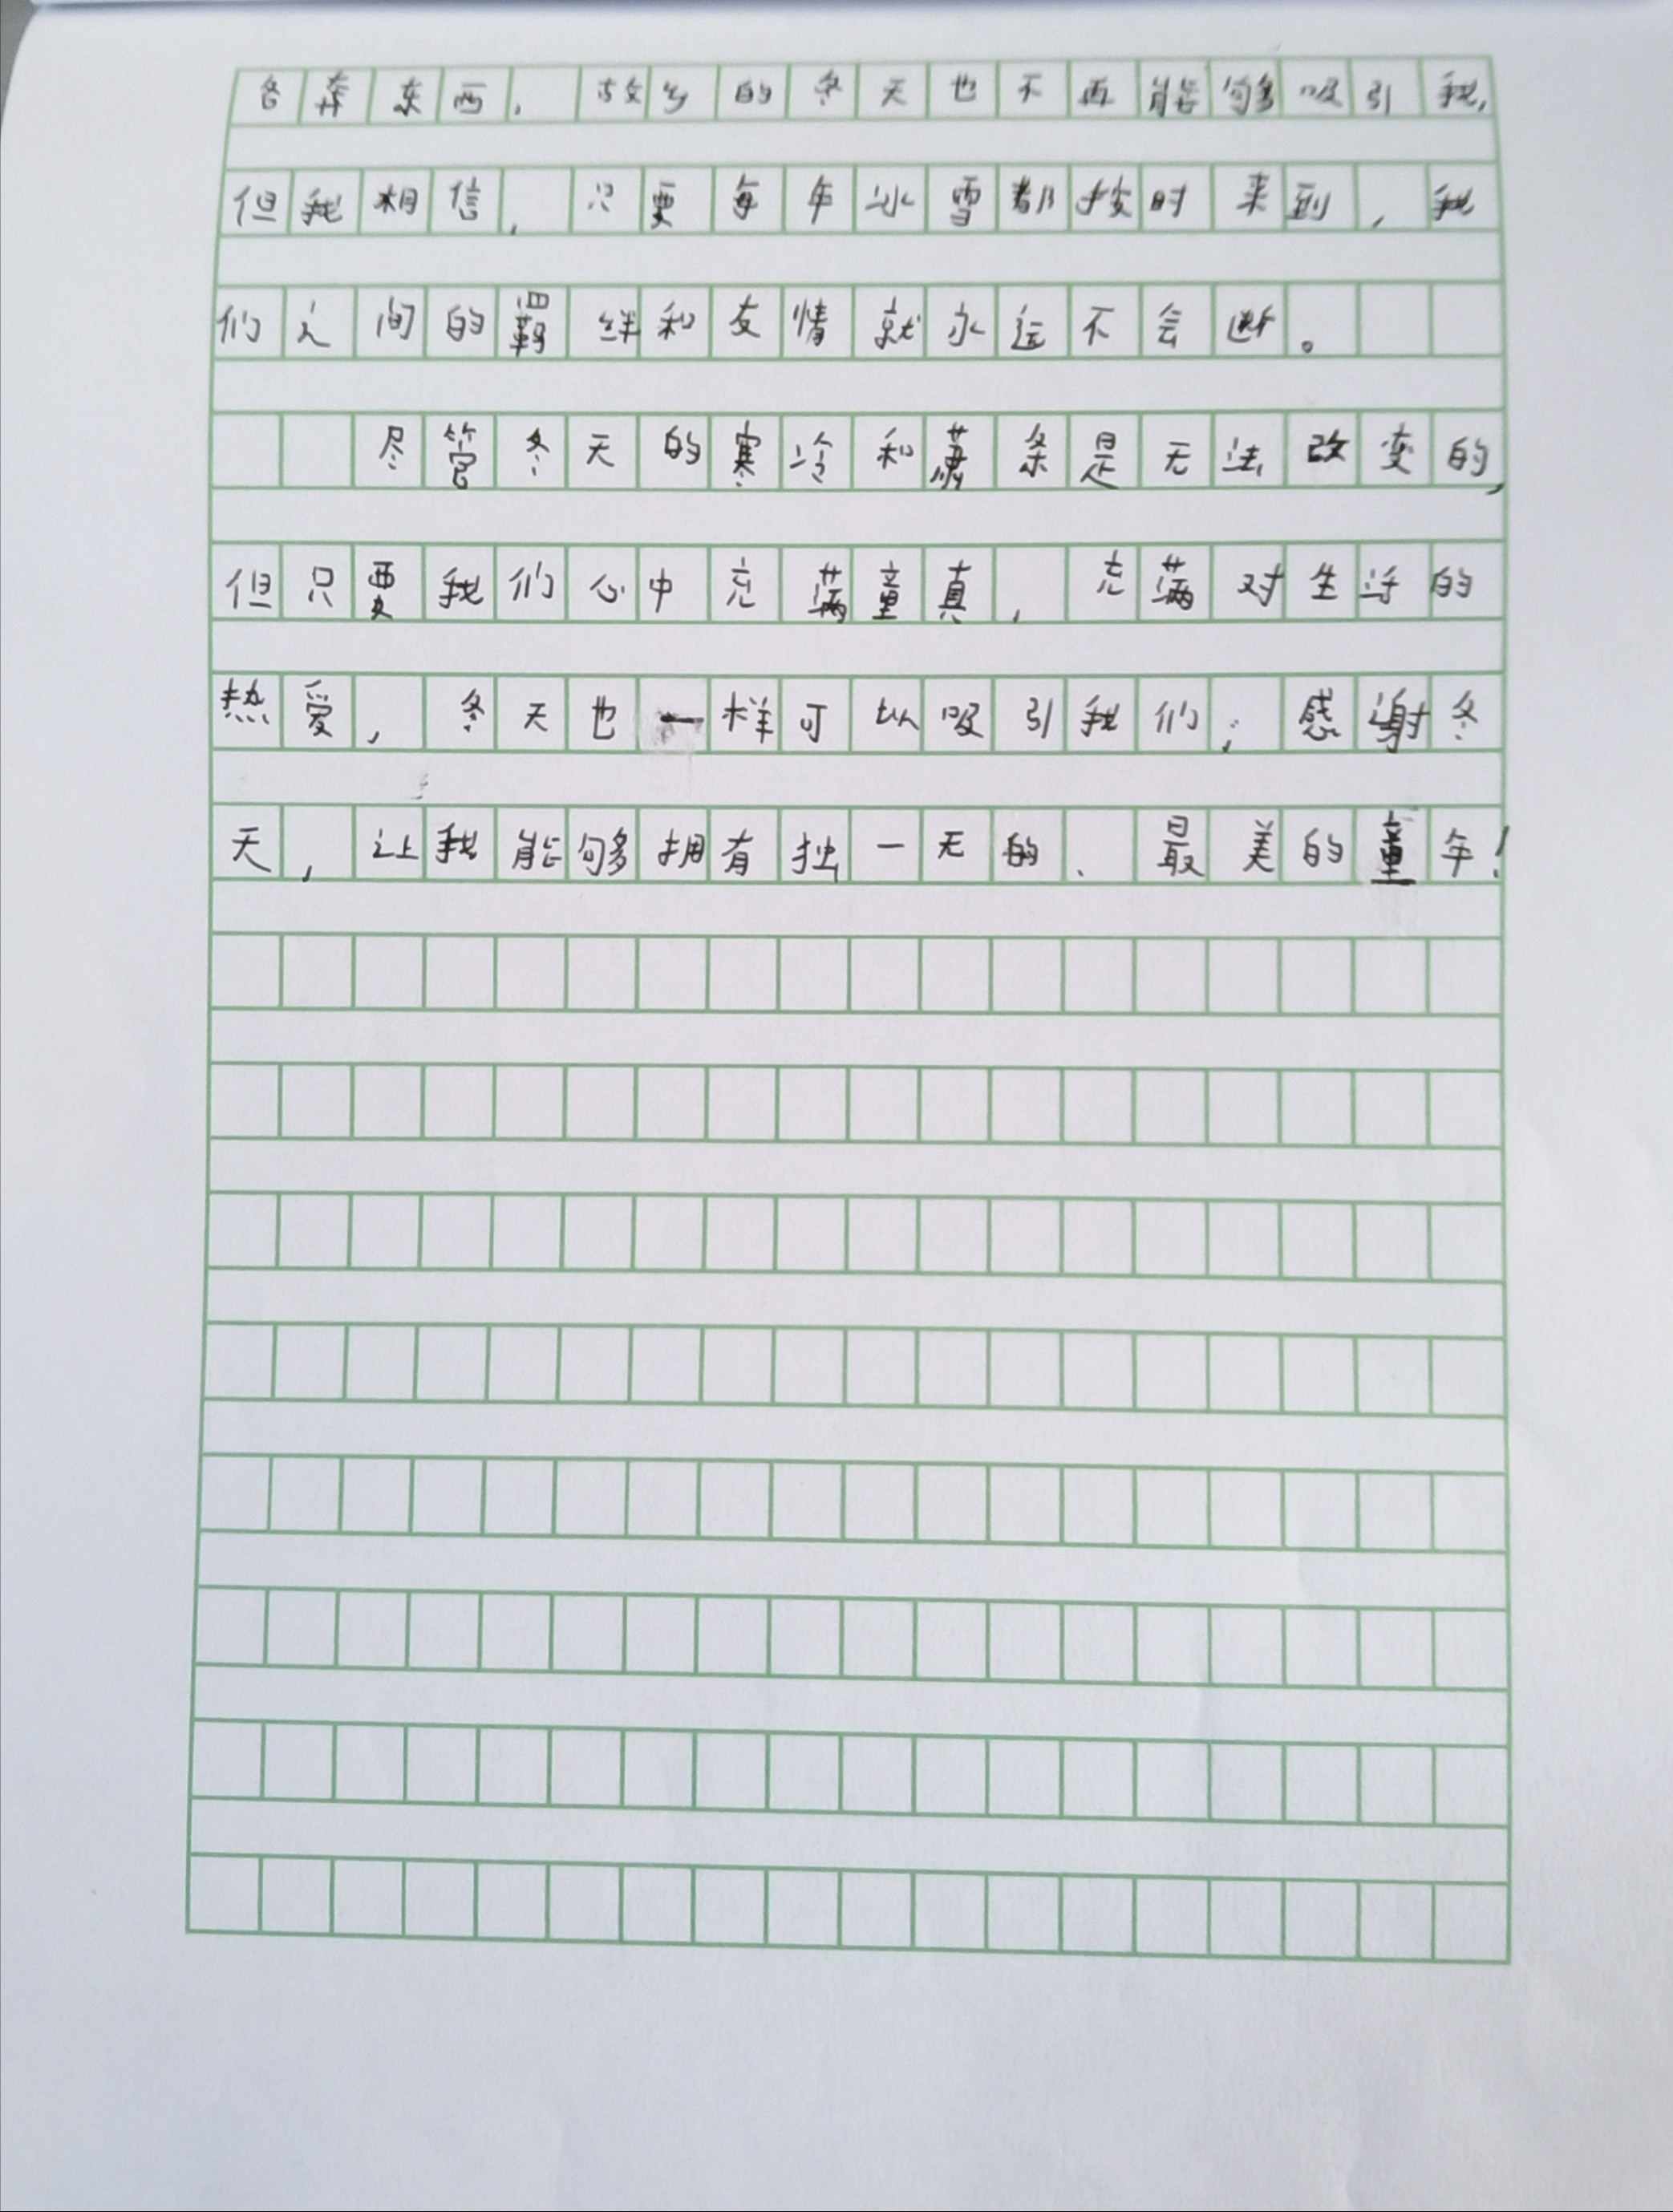 各奔东西，故乡的冬天也不再能够吸引我，
但我相信，只要每年冰雪都按时来到，我
们之间的羁绊和友情就永远不会断。
尽管冬天的寒冷和萧条是无法改变的，
但只要我们心中充满童真，充满对生活的
热爱，冬天也一样可以吸引我们；感谢冬
天，让我能够拥有独一无的、最美的童年！